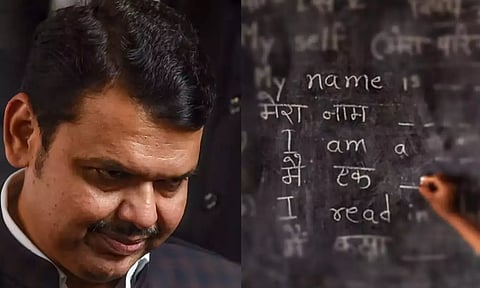 My self
My name is
मेरा नाम __
I am a
मैं एक __
I read in
मैं कक्षा